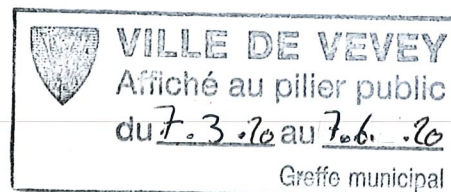 VILLE DE VEVEY
Affiché au pilier public
du 7.3.20 au 7.6.20
Greffe municipal